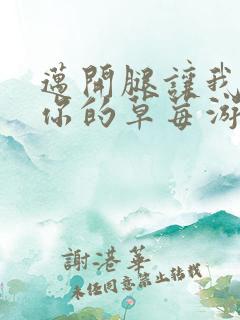 邁開腿讓我
你的草莓游
謝港華
未經同意禁止轉載